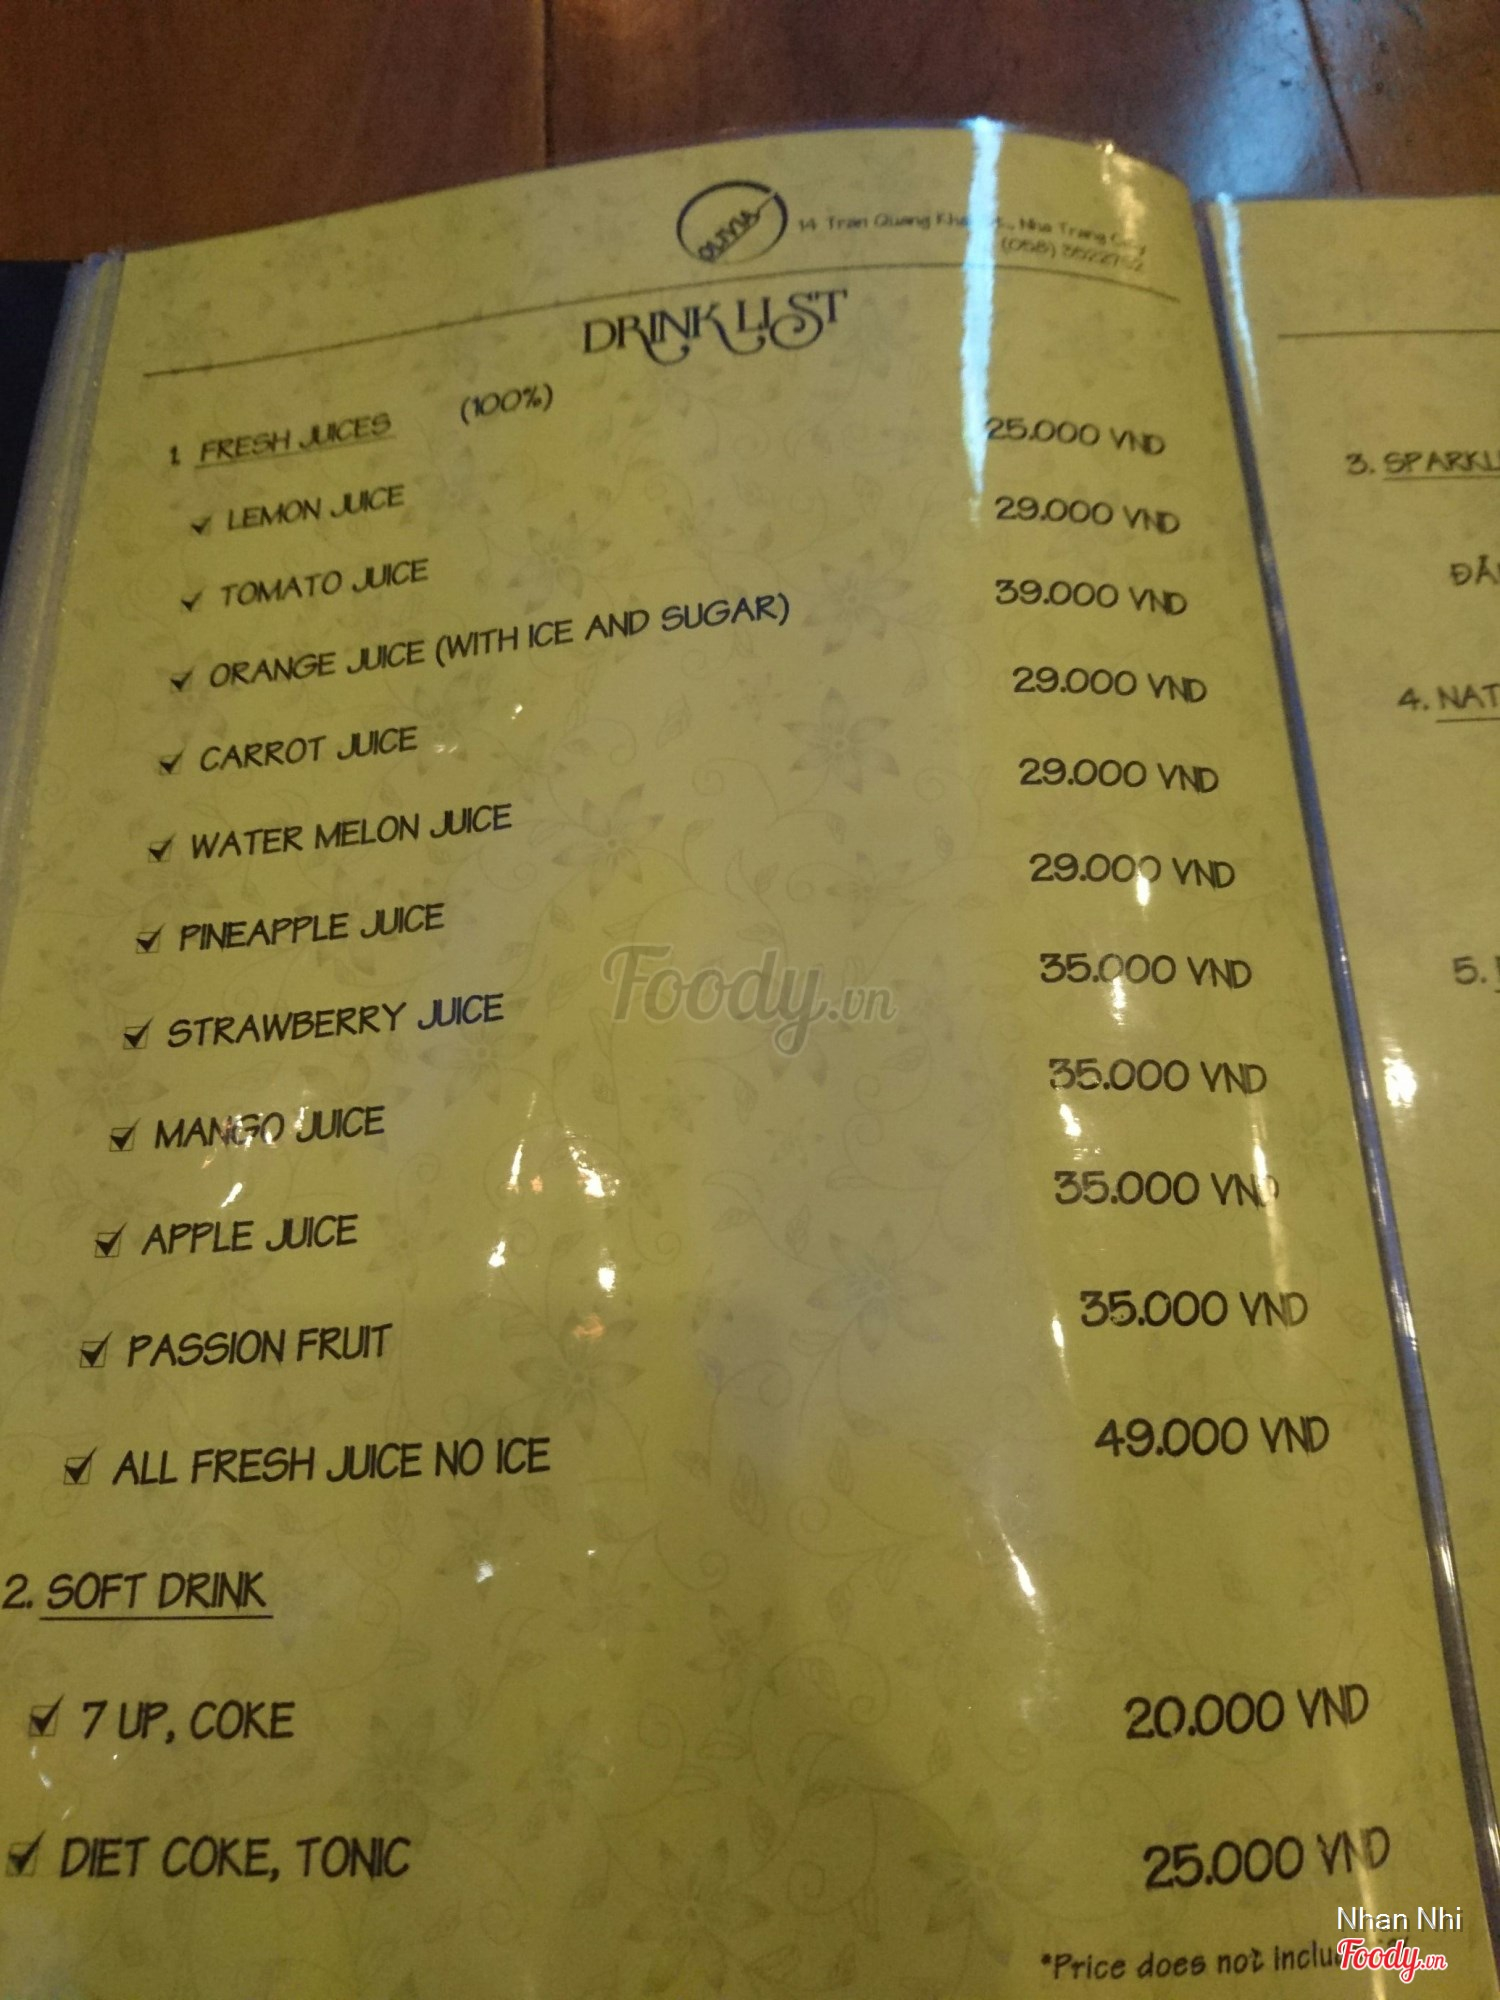 OLIVIA
14 Tran Quang Nha Trang City
(058)
DRINK LIST
1. FRESH JUICES (100%)
LEMON JUICE 25.000 VND
TOMATO JUICE 29.000 VND
ORANGE JUICE (WITH ICE AND SUGAR) 39.000 VND
CARROT JUICE 29.000 VND
WATER MELON JUICE 29.000 VND
PINEAPPLE JUICE 29.000 VND
STRAWBERRY JUICE 35.000 VND
MANGO JUICE 35.000 VND
APPLE JUICE 35.000 VND
PASSION FRUIT 35.000 VND
ALL FRESH JUICE NO ICE 49.000 VND
2. SOFT DRINK
7 UP, COKE 20.000 VND
DIET COKE, TONIC 25.000 VND
*Price does not
3.
4.
5.
Foody.vn
Nhan Nhi
Foody.vn